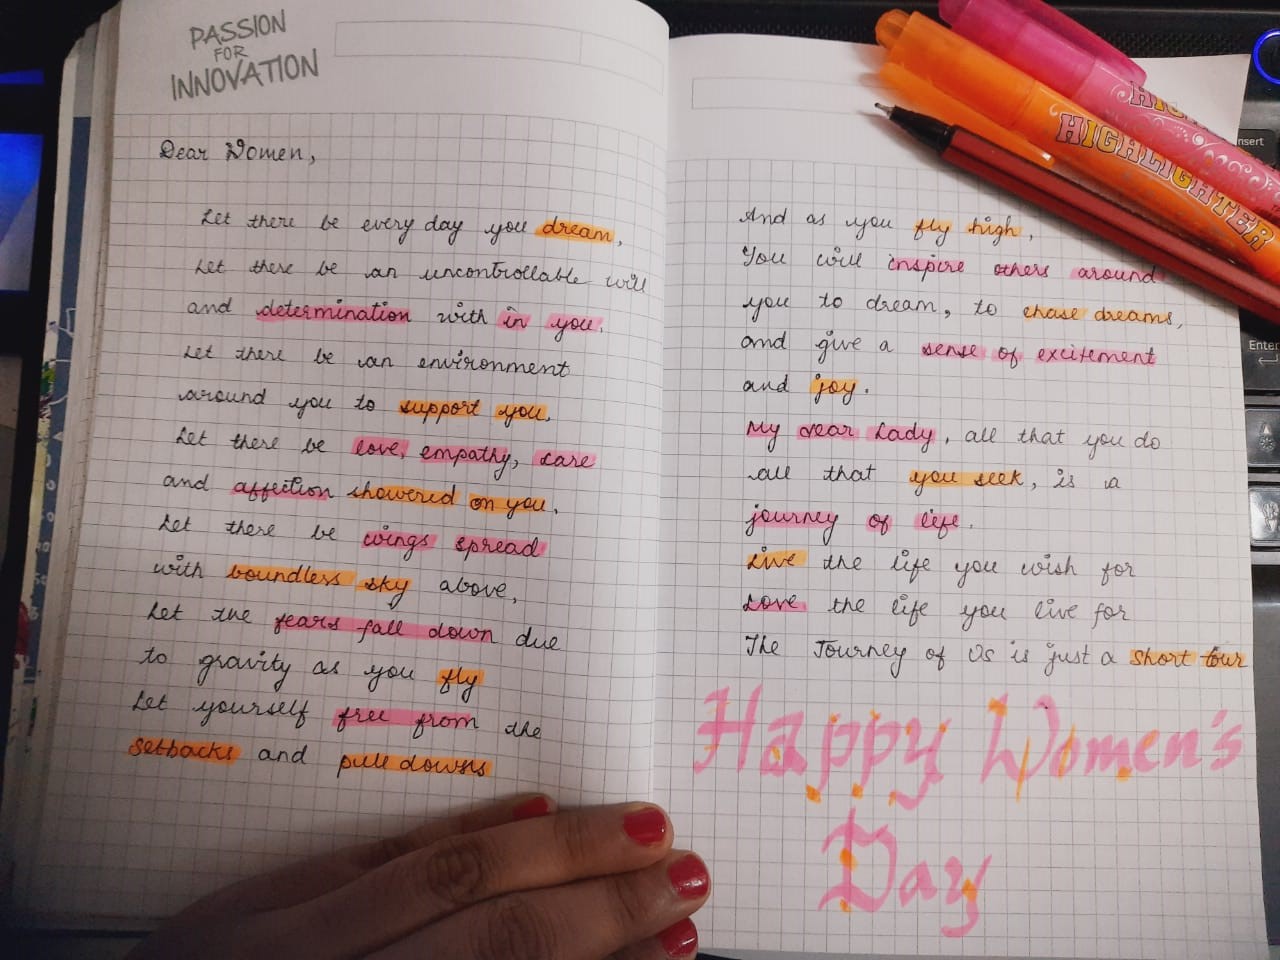 PASSION
FOR
INNOVATION
Dear Women,
Let there be every day you dream,
Let there be an uncontrollable will
and determination with in you.
Let there be an environment
around you to support you.
Let there be love, empathy, care
and affection showered on you.
Let there be wings spread
with boundless sky above,
Let the fears fall down due
to gravity as you fly
Let yourself free from the
setbacks and pull downs
And as you fly high,
You will inspire others around
you to dream, to chase dreams,
and give a sense of excitement
and joy.
My dear Lady, all that you do
all that you seek, is a
journey of life.
Live the life you wish for
Love the life you live for
The Journey of Us is just a short tour
Happy Women's
Day
HIGHLIGHTER
Insert
Enter